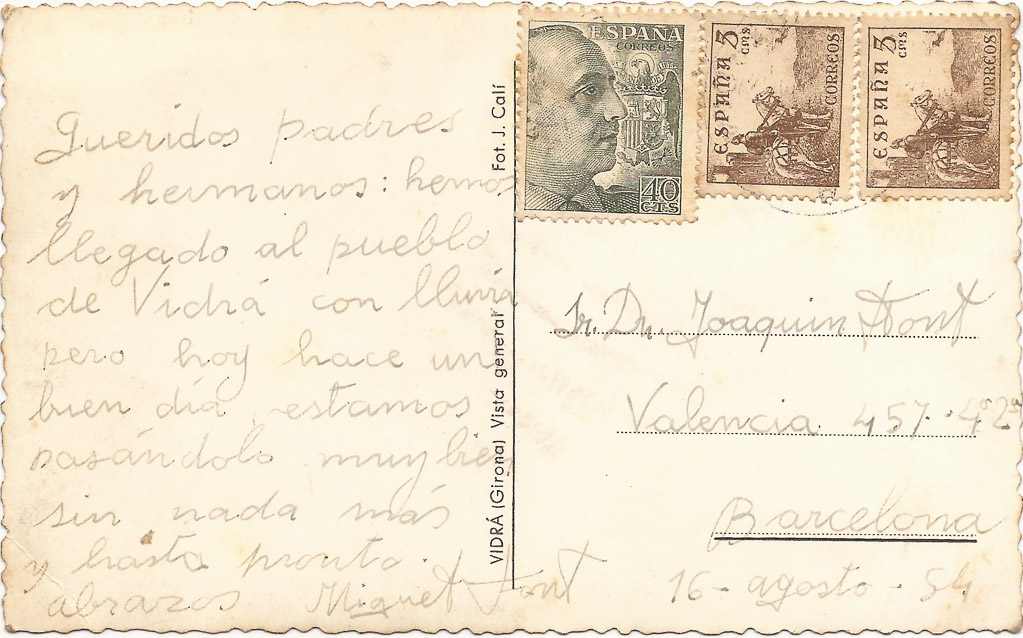 Queridos padres
y hermanos: hemos
llegado al pueblo
de Vidrá con lluvia
pero hoy hace un
buen día estamos
pasándolo muy bien
sin nada más
y hasta pronto.
abrazos Miguel Font
VIDRÁ (Girona) Vista general Fot. J. Calí
ESPAÑA
CORREOS
40
CTS
ESPAÑA 5 CTS
CORREOS
ESPAÑA 5 CTS
CORREOS
Sr. Dr. Joaquin Font
Valencia 457. 4º 2ª
Barcelona
16 - agosto - 54